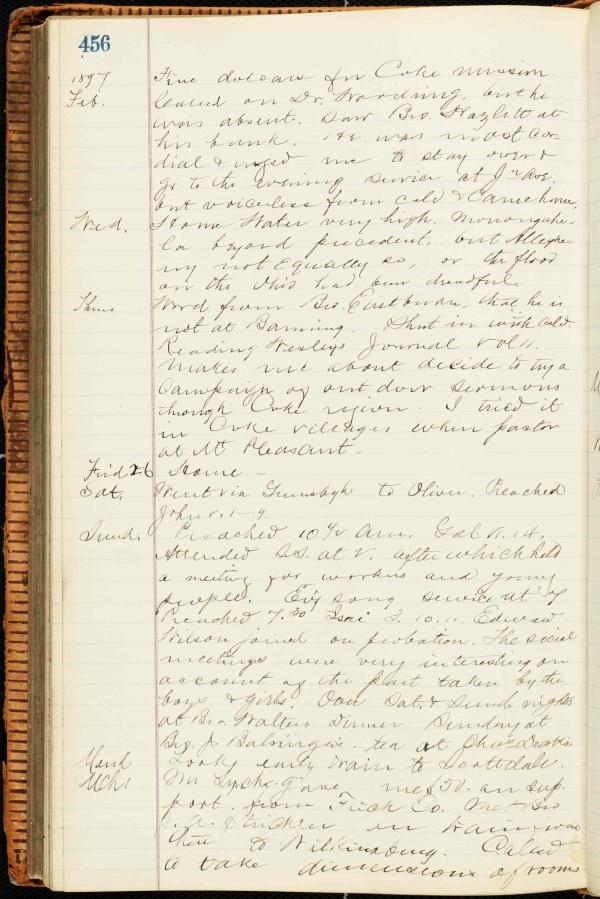 456
1897 Five dollars for Coke mission
Feb. Called on Dr. Wooding, but he
was absent. Saw Bro. Hazlett at
his bank. He was most cor-
dial & urged me to stay over &
go to the evening service at Ave.
but voiceless from cold & came home.
Wed. Home. Water very high. Mononga­he-
la beyond precedent, but Alleghe-
ny not Equally so, or the flood
on the Ohio had been dreadful.
Thurs Word from Bro. Eastman, that he is
not at Banning. Shut in with cold.
Reading Wesley's Journal Vol II.
Makes me about decide to try a
Campaign of out door sermons
through Coke region. I tried it
in Coke villages when pastor
at Mt Pleasant -
Frid 26. Home -
Sat. Went via Greensbgh to Oliver. Preached
John V. 1-9
Sund. Preached 10 1/2 Am. Gal. VI. 14.
Attended S.S. at 2. after which held
a meeting for workers and young
people. Ev'g song service at 7
Preached 7.30 Isai 3. 10. 11. Edward
Wilson joined on probation. The social
meetings were very interesting on
account of the part taken by the
boys & girls. Over Sat. & Sund. nights
at Bro. Walters Dinner Sunday at
Bro. J. Balsingers. tea at Chas
Mond Took early train to Scottdale.
Mch 1 Mr Lynch gave me $50. on sup-
port. from Frick Co. Met Bro
Strickler on train from
there to Wilkinsburg. Called
to take dimensions of rooms